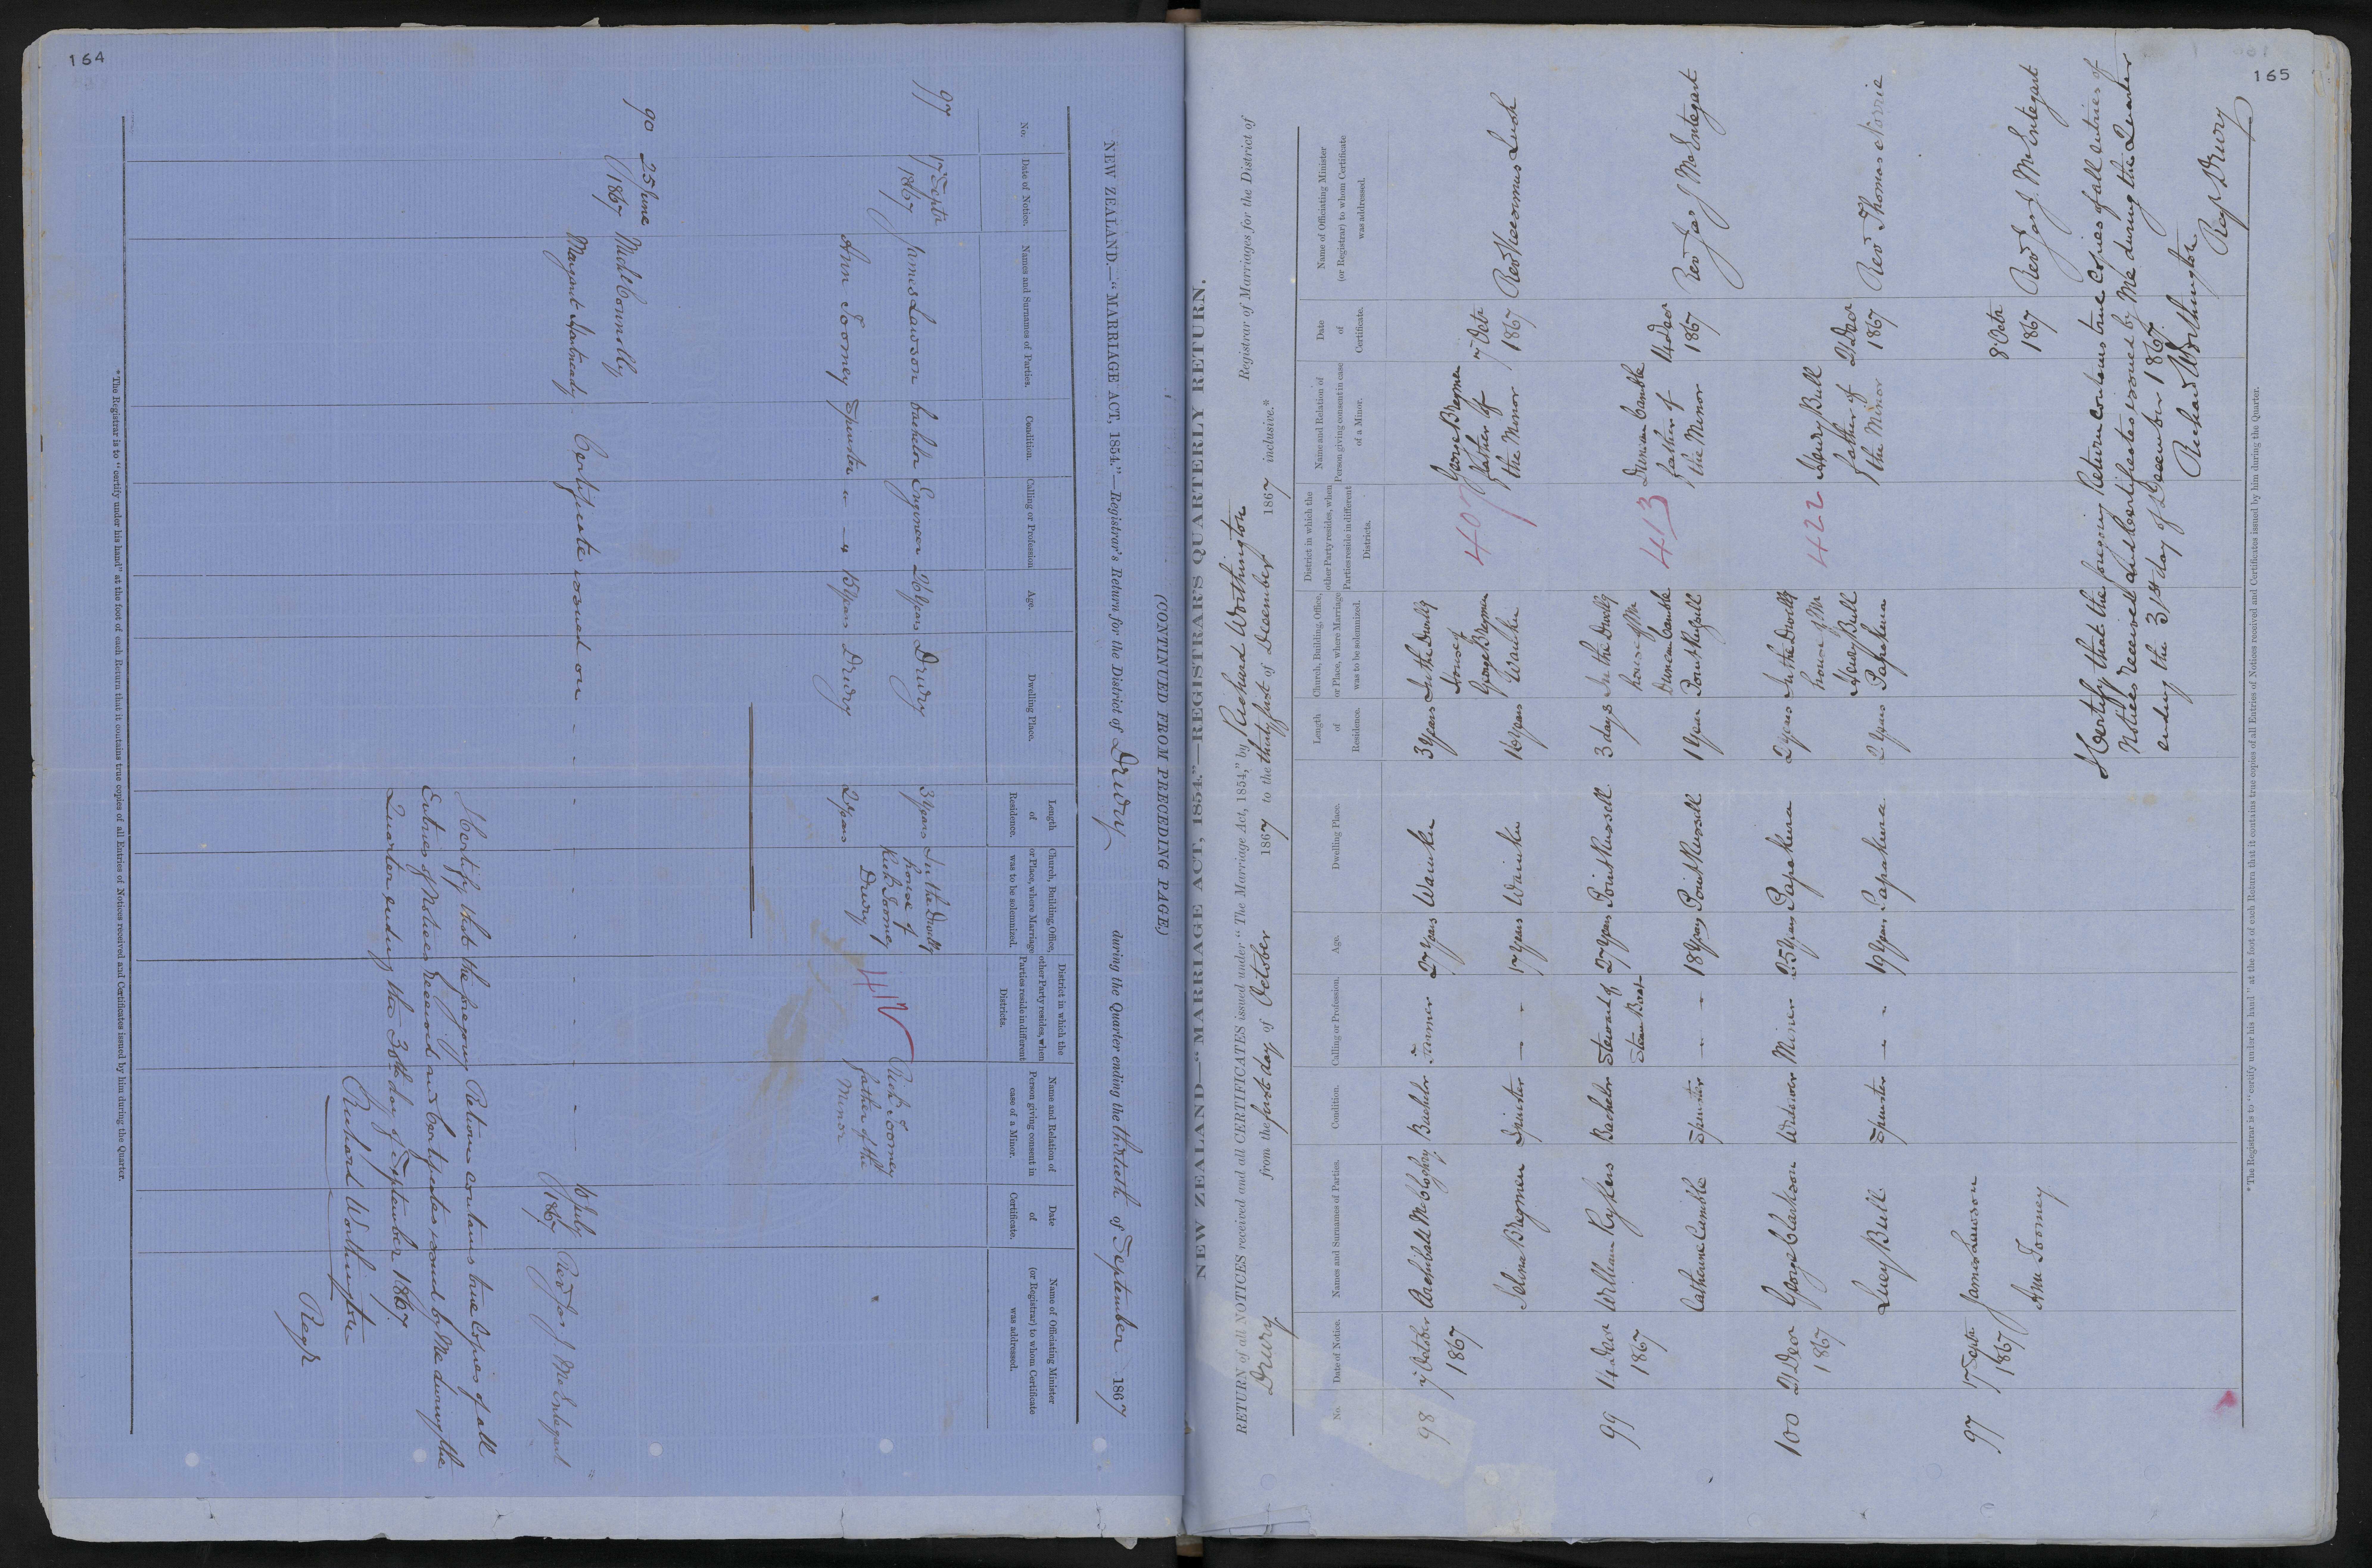 164
(CONTINUED FROM PRECEDING PAGE.)
NEW ZEALAND.—"MARRIAGE ACT, 1854."—Registrar's Return for the District of Drury during the Quarter ending the thirtieth of September 1867
No.
Date of Notice.
Names and Surnames of Parties.
Condition.
Calling or Profession
Age.
Dwelling Place.
Length of Residence.
Church, Building, Office, or Place, where Marriage was to be solemnized.
District in which the other Party resides, when Parties reside in different Districts.
Name and Relation of Person giving consent in case of a Minor.
Date of Certificate.
Name of Officiating Minister (or Registrar) to whom Certificate was addressed.
97 17 Septr 1867 James Lawson bachelor Engineer 26 Years Drury 3 Years In the Dwellg house of Richd Toomey Drury
Ann Toomey Spinster 15 Years Drury 2 Years
Richd Toomey father of the Minor
90 25 June 1867 Michl Connolly
Margaret
Certificate issued on 10 July 1867 Revd Jas J McEntegart
I Certify that the foregoing Return contains true Copies of all
Entries of Notices Received and Certificates issued by Me during the
Quarter ending the 30th day of September 1867.
Richard Worthington
Regr
* The Registrar is to "certify under his hand" at the foot of each Return that it contains true copies of all Entries of Notices received and Certificates issued by him during the Quarter.
165
NEW ZEALAND—"MARRIAGE ACT, 1854."—REGISTRAR'S QUARTERLY RETURN.
RETURN of all NOTICES received and all CERTIFICATES issued under "The Marriage Act, 1854," by Richard Worthington Registrar of Marriages for the District of
Drury from the first day of October 1867 to the thirty first of December 1867 inclusive.*
No.
Date of Notice.
Names and Surnames of Parties.
Condition.
Calling or Profession.
Age.
Dwelling Place.
Length of Residence.
Church, Building, Office, or Place, where Marriage was to be solemnized.
District in which the other Party resides, when Parties reside in different Districts.
Name and Relation of Person giving consent in case of a Minor.
Date of Certificate.
Name of Officiating Minister (or Registrar) to whom Certificate was addressed.
98 7 October 1867 Archibald Bachelor Farmer 27 Years Waiuku 3 Years In the Dwellg House of George Waiuku
Selina Spinster 17 Years Waiuku 16 Years
407
George father of the Minor 7 Octr 1867 Revd Vicesimus Lush
99 14 Decr 1867 William Rykers Bachelor Steward of Steam Boat 27 Years Point Russell 3 days In the Dwellg house of Mr Duncan Camble Point Russell
Catherine Camble Spinster 18 Years Point Russell 1 Year
413
Duncan Camble father of the Minor 14 Decr 1867 Revd Jas J McEntegart
100 21 Decr 1867 George Clarkson Widower Miner 25 Years Papakura 2 years In the Dwellg house of Mr Henry Bull Papakura
Lucy Bull Spinster 19 Years Papakura 2 Years
422
Henry Bull father of the Minor 21 Decr 1867 Revd Thomas Norrie
97 17 Septr 1867 James Lawson
Ann Toomey
8 Octr 1867 Revd Jas J. McEntegart
I Certify that the foregoing Return contains true Copies of all Entries of
Notices received and Certificates issued by Me during the Quarter
ending the 31st day of December 1867.
Richard Worthington
Regr Drury
* The Registrar is to "certify under his hand" at the foot of each Return that it contains true copies of all Entries of Notices received and Certificates issued by him during the Quarter.